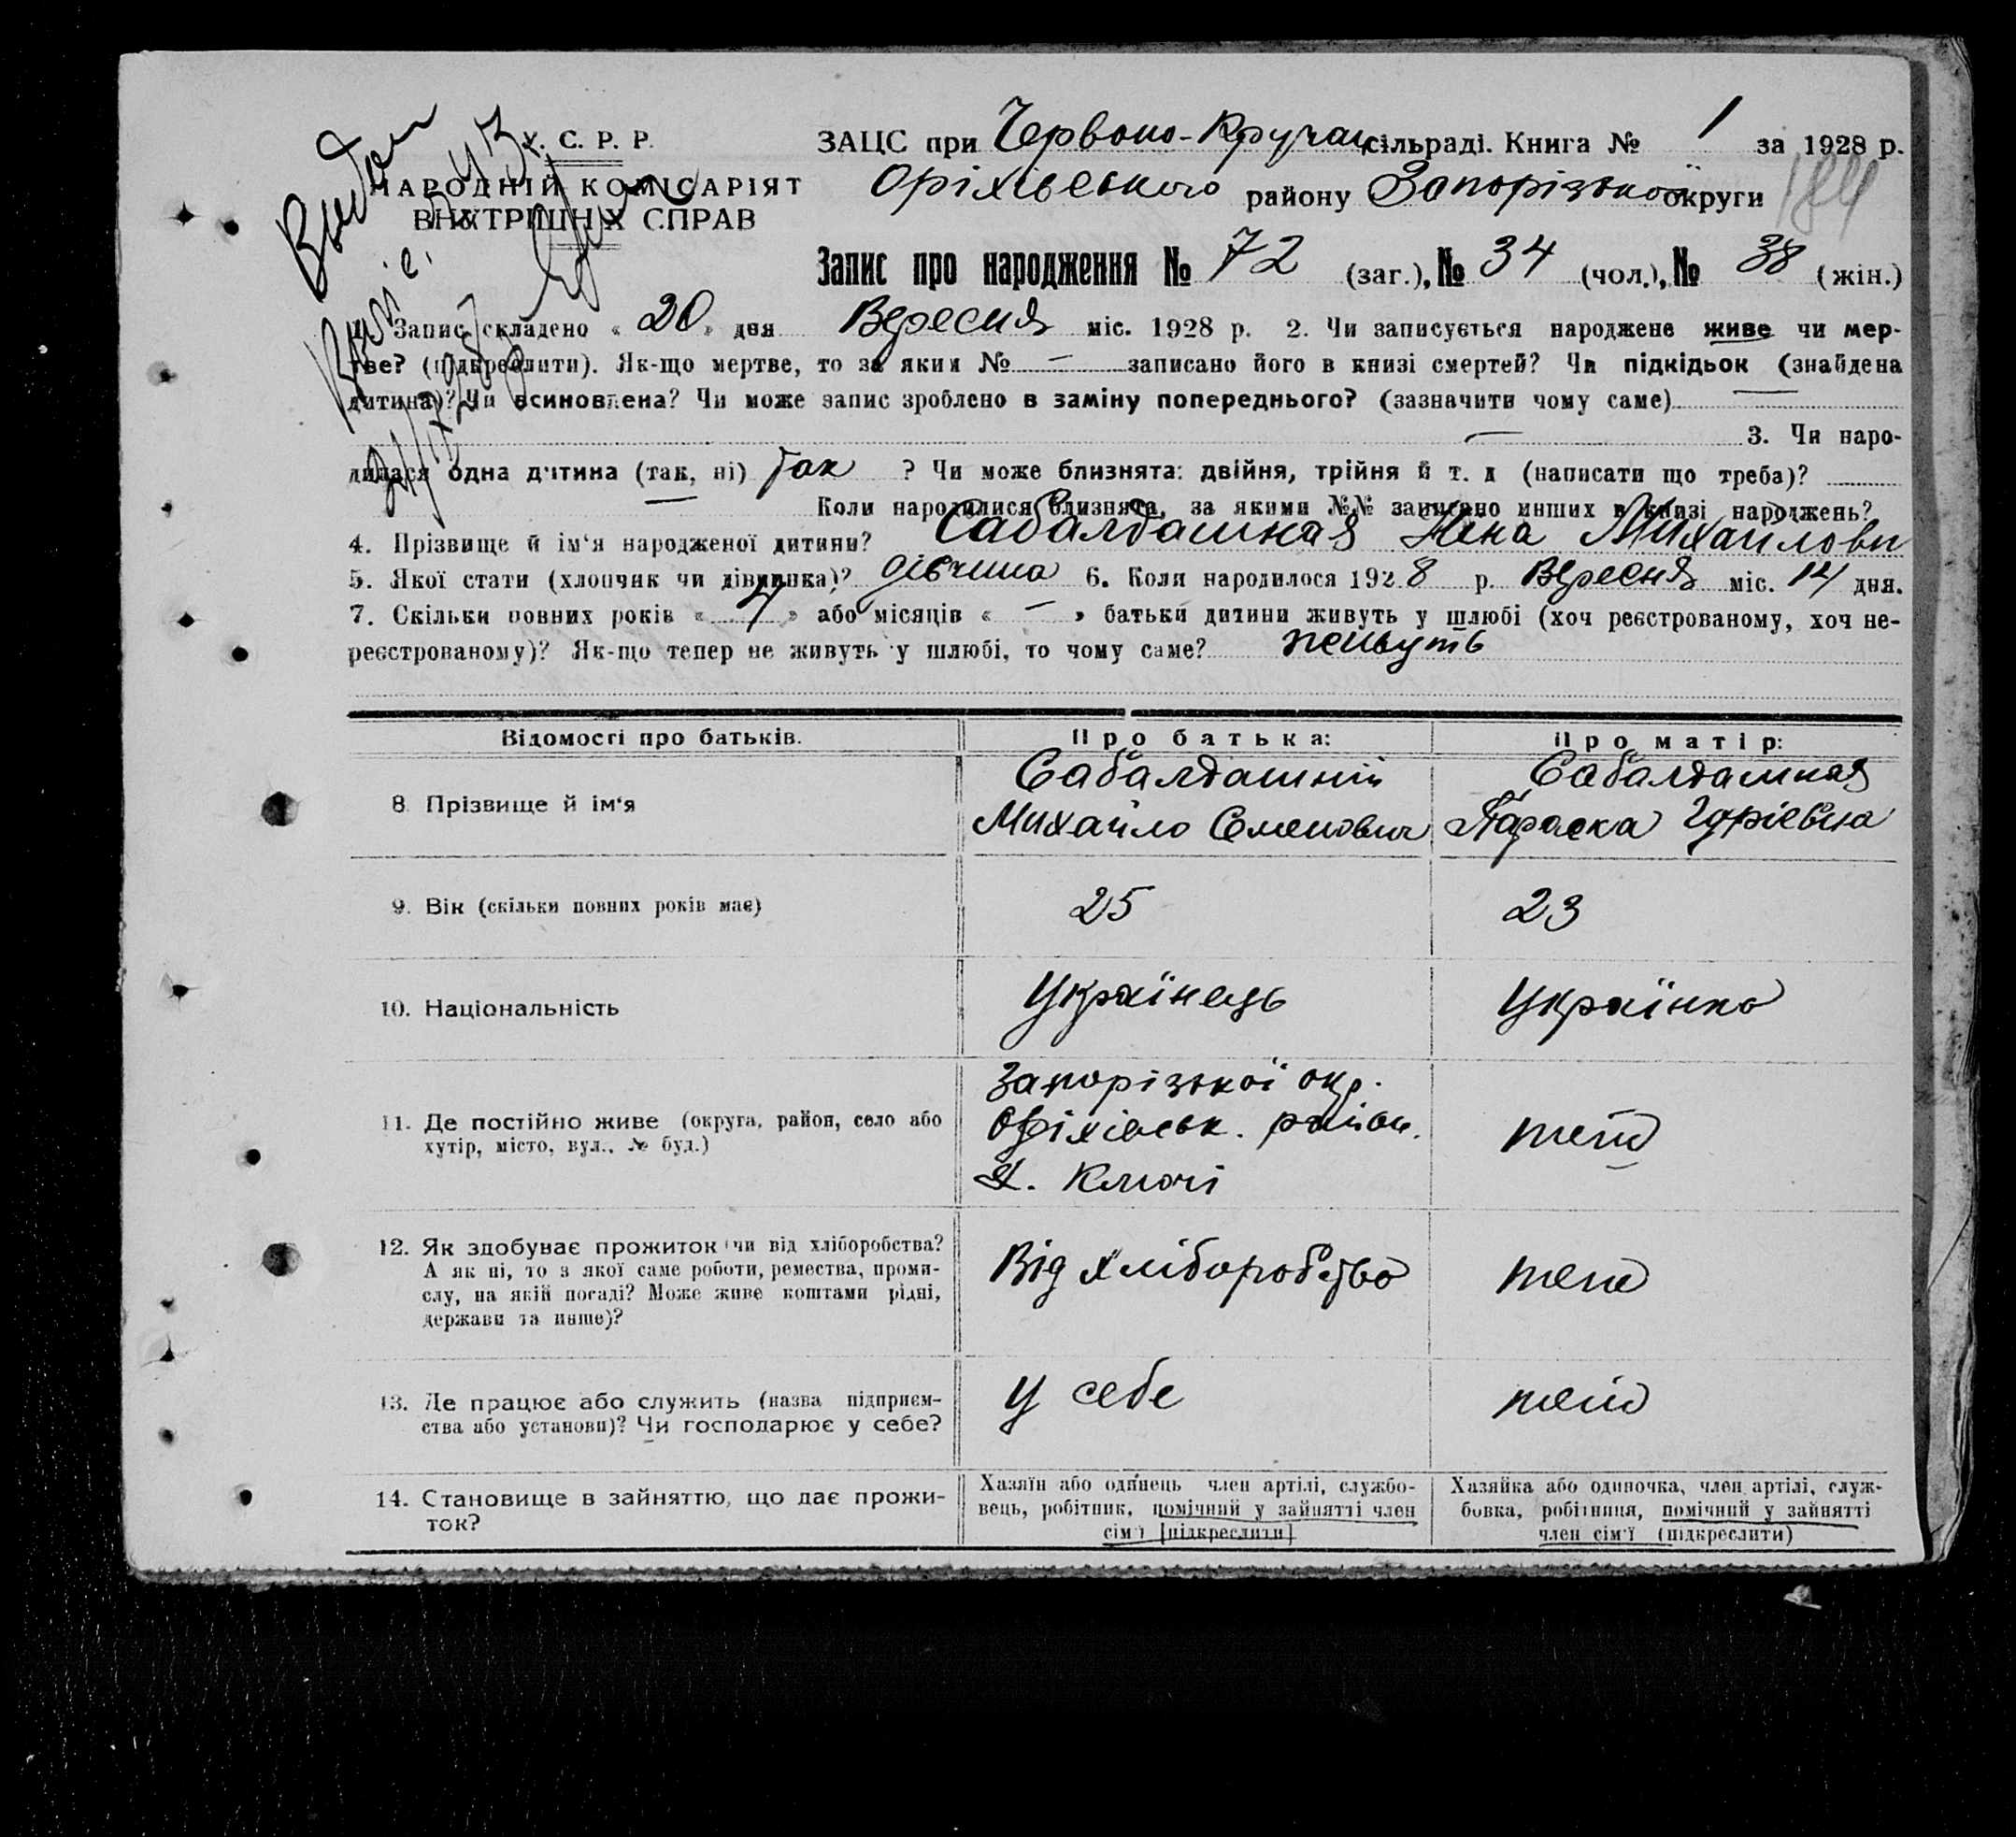 У. С. Р. Р.
НАРОДНІЙ КОМІСАРІЯТ
ВНУТРІШНІХ СПРАВ
ЗАЦС при Червоно-Кручан сільраді. Книга № 1 за 1928 р.
Оріхівського району Запорізької округи
Запис про народження № 72 (заг.), № 34 (чол.), № 38 (жін.)
1. Запис складено « 20 » дня Вересня міс. 1928 р. 2. Чи записується народжене живе чи мер-
тве? (підкреслити). Як-що мертве, то за яким № — записано його в книзі смертей? Чи підкідьок (знайдена
дитина)? Чи всиновлена? Чи може запис зроблено в заміну попереднього? (зазначити чому саме) —
— 3. Чи наро-
дилася одна дитина (так, ні) так ? Чи може близнята: двійня, трійня й т. д (написати що треба)?
— Коли народилися близнята, за якими №№ записано инших в книзі народжень?
4. Прізвище й ім‘я народженої дитини? Сабалдашная Нена Михайловн
5. Якої стати (хлопчик чи дівчинка)? дівчина 6. Коли народилося 1928 р. Вересня міс. 14 дня.
7. Скільки повних років « 4 » або місяців « — » батьки дитини живуть у шлюбі (хоч реєстрованому, хоч не-
реєстрованому)? Як-що тепер не живуть у шлюбі, то чому саме?
Відомості про батьків. Про батька: Про матір:
8. Прізвище й ім‘я
Сабалдашній
Михайло Семенович
Сабалдашная
Параска Юріевна
9. Вік (скільки повних років має) 25 23
10. Національність Українець Українка
11. Де постійно живе (округа, район, село або
хутір, місто, вул., № буд.)
Запорізької окр.
Оріхівськ. район.
х. Ключі
теж
12. Як здобуває прожиток (чи від хліборобства?
А як ні, то з якої саме роботи, ремества, проми-
слу, на якій посаді? Може живе коштами рідні,
держави та инше)?
Від хліборобства
теж
13. Де працює або служить (назва підприєм-
ства або установи)? Чи господарює у себе?
У себе
теж
14. Становище в зайняттю, що дає прожи-
ток?
Хазяїн або одинець член артілі, службо-
вець, робітник, помічний у зайнятті член
сім‘ї [підкреслити]
Хазяйка або одиночка, член артілі, служ-
бовка, робітниця, помічний у зайнятті
член сім‘ї (підкреслити)